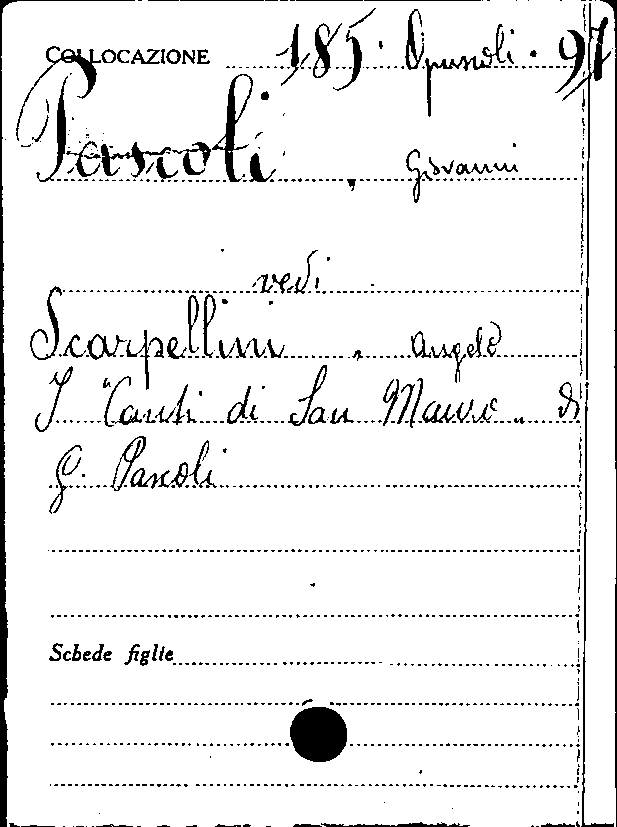 COLLOCAZIONE 185. Opuscoli. 97
Pascoli, Giovanni
vedi
Scarpellini, Angelo
I "Canti di San Mauro„ di
G. Pascoli
Schede figlie